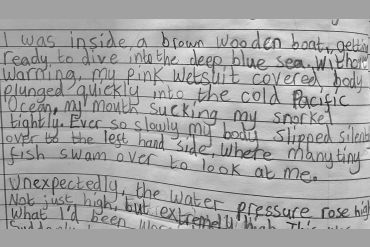 I was inside, a brown wooden boat, getting
ready, to dive into the deep blue sea. Without
warning, my pink wetsuit covered body
plunged quickly into the cold Pacific
Ocean, my mouth sucking my snorkel
tightly. Ever so slowly my body slipped silent
over to the left hand side, where many tiny
fish swam over to look at me.
Unexpectedly, the water pressure rose high
Not just high, but extremely high. This
What I'd been
Suddenly